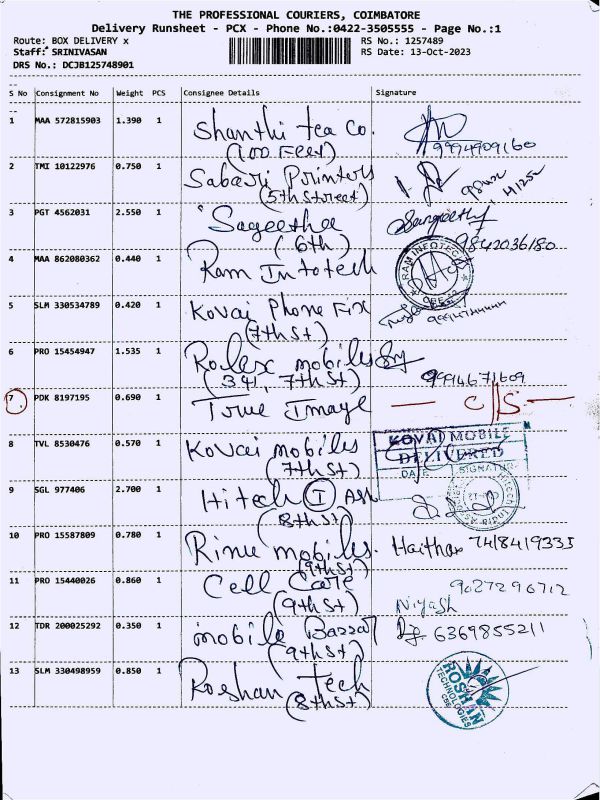 THE PROFESSIONAL COURIERS, COIMBATORE
Delivery Runsheet - PCX - Phone No.:0422-3505555 - Page No.:1
Route: BOX DELIVERY x RS No.: 1257489
Staff: SRINIVASAN RS Date: 13-Oct-2023
DRS No.: DCJB125748901
S No Consignment No Weight PCS Consignee Details Signature
1 MAA 572815903 1.390 1 Shanthi tea Co.
(100 Feet) 9994909160
2 TMI 10122976 0.750 1 Sabari Printers
(5th Street)
3 PGT 4562031 2.550 1 Sageetha Sangeetha
(6th) 9842036180
4 MAA 862080362 0.440 1 Ram Infotech RAM INFOTECH
CBE-12
5 SLM 330534789 0.420 1 Kovai Phone Fix
(7th St)
6 PRO 15454947 1.535 1 Rolex mobiles
(341, 7th St) 9994671609
7 PDK 8197195 0.690 1 True Image — C/S —
8 TVL 8530476 0.570 1 Kovai mobiles KOVAI MOBILE
(7th St) DELIVERED
DATE SIGNATURE
9 SGL 977406 2.700 1 Hitech I Ass
(8th St)
10 PRO 15587809 0.780 1 Rinu mobiles. 7418419335
(9th St)
11 PRO 15440026 0.860 1 Cell Care 9027296712
(9th St) Niyash
12 TDR 200025292 0.350 1 mobile Bazzar 6369855211
(9th St)
13 SLM 330498959 0.850 1 Roshan Tech ROSHAN
(8th St) TECHNOLOGIES
CBE